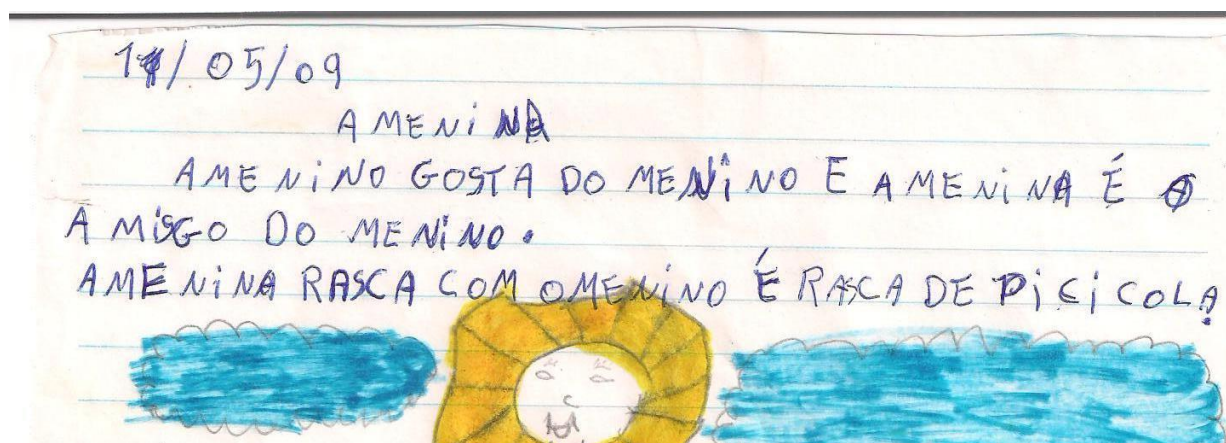 11/05/09
A MENINA
AMENINO GOSTA DO MENINO E AMENINA É
A MISGO DO MENINO.
AMENINA RASCA COM OMENINO É RASCA DE PICICOLA.